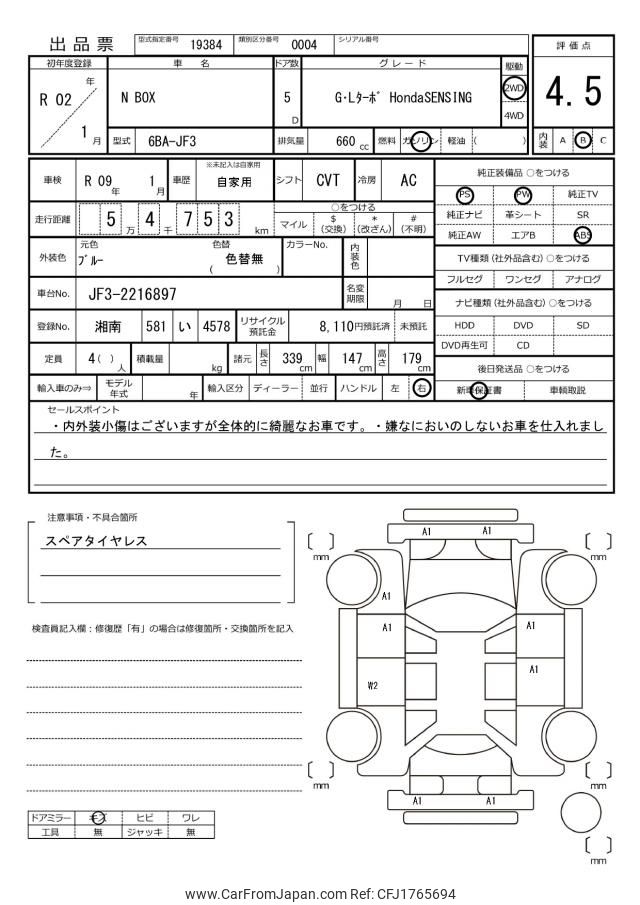 出品票 型式指定番号 19384 類別区分番号 0004 シリアル番号
評価点
4.5
内装 A B C
初年度登録 車名 ドア数 グレード 駆動
R 02 年 1 月
N BOX 5 D G・Lターボ HondaSENSING 2WD
4WD
型式 6BA-JF3 排気量 660 cc 燃料 ガソリン 軽油 ( )
車検 R 09 年 1 月 車歴 ※未記入は自家用 自家用 シフト CVT 冷房 AC
走行距離 5 万 4 千 7 5 3 km
○をつける
マイル $ (交換) * (改ざん) # (不明)
外装色 元色 ブルー 色替 ( 色替無 ) カラーNo. 内装色
車台No. JF3-2216897 名変期限 月 日
登録No. 湘南 581 い 4578 リサイクル預託金 8,110円預託済 未預託
定員 4 ( ) 人 積載量 kg 諸元 長さ 339 cm 幅 147 cm 高さ 179 cm
輸入車のみ⇒ モデル年式 年 輸入区分 ディーラー 並行 ハンドル 左 右
純正装備品 ○をつける
PS PW 純正TV
純正ナビ 革シート SR
純正AW エアB ABS
TV種類 (社外品含む) ○をつける
フルセグ ワンセグ アナログ
ナビ種類 (社外品含む) ○をつける
HDD DVD SD
DVD再生可 CD
後日発送品 ○をつける
新車保証書 車輌取説
セールスポイント
・内外装小傷はございますが全体的に綺麗なお車です。・嫌なにおいのしないお車を仕入れまし
た。
注意事項・不具合箇所
スペアタイヤレス
検査員記入欄：修復歴「有」の場合は修復箇所・交換箇所を記入
A1 A1
mm mm
A1
A1 A1
A1
W2
mm mm
A1 A1
mm
ドアミラー キズ ヒビ ワレ
工具 無 ジャッキ 無
www.CarFromJapan.com Ref: CFJ1765694